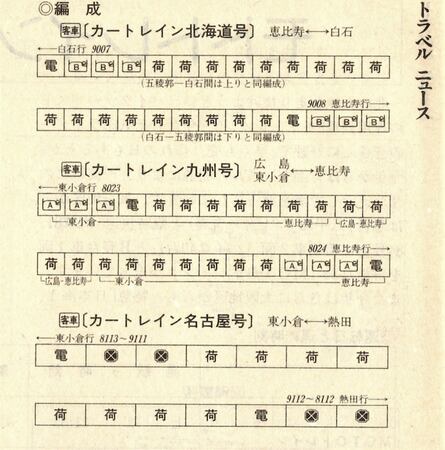 トラベル ニュース
◎編成
客車〔カートレイン北海道号〕 恵比寿←→白石
←白石行 9007
電 B B B 荷 荷 荷 荷 荷 荷 荷 荷 荷
(五稜郭―白石間は上りと同編成)
9008 恵比寿行→
荷 荷 荷 荷 荷 荷 荷 荷 荷 電 B B B
(白石―五稜郭間は下りと同編成)
客車〔カートレイン九州号〕 広島 東小倉←→恵比寿
←東小倉行 8023
A A A 電 荷 荷 荷 荷 荷 荷 荷 荷 荷
東小倉 恵比寿 広島・恵比寿
8024 恵比寿行→
荷 荷 荷 荷 荷 荷 荷 荷 荷 A A A 電
広島・恵比寿 東小倉 恵比寿
客車〔カートレイン名古屋号〕 東小倉←→熱田
←東小倉行 8113~9111
電 ⊗ ⊗ 荷 荷 荷 荷
9112~8112 熱田行→
荷 荷 荷 荷 電 ⊗ ⊗